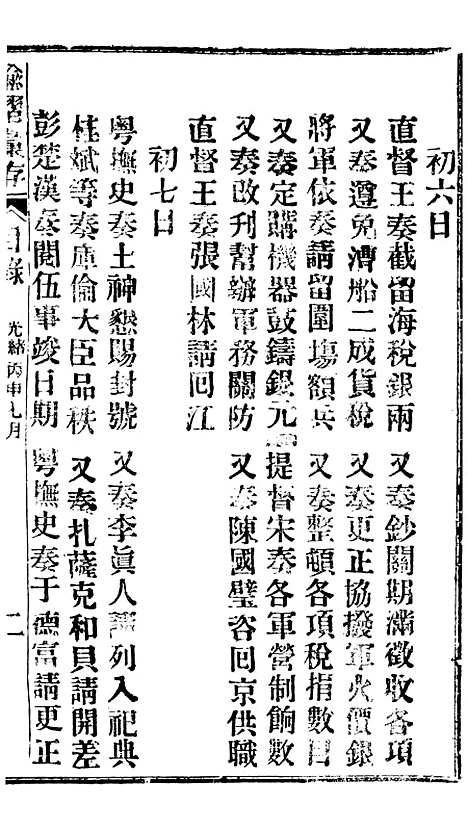 初六日
直督王奏截留海稅銀兩　又奏鈔關期滿徵收各項
又奏遵免漕船二成貨稅　又奏更正協撥軍火價銀
將軍依奏請留圍場額兵　又奏整頓各項稅捐數目
又奏定購機器鼓鑄銀元　提督宋奏各軍營制餉數
又奏改刊幫辦軍務關防　又奏陳國璧咨回京供職
直督王奏張國林請回江
初七日
粵撫史奏土神懇賜封號　又奏李眞人請列入祀典
桂斌等奏庫倫大臣品秩　又奏扎薩克和貝請開差
彭楚漢奏閱伍事竣日期　粵撫史奏于德富請更正
諭摺彙存　目錄　光緒丙申七月　二